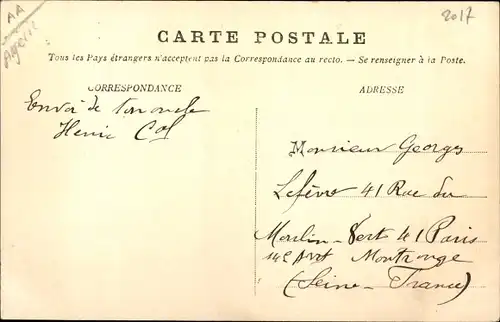 AA
Agérie
2017
CARTE POSTALE
Tous les Pays étrangers n'acceptent pas la Correspondance au recto. — Se renseigner à la Poste.
CORRESPONDANCE
ADRESSE
Envoi de ton oncle
Henri
Monsieur Georges
Lefèvre 41 Rue du
Moulin-Vert 41 Paris
14e Arrt Montrouge
(Seine-France)